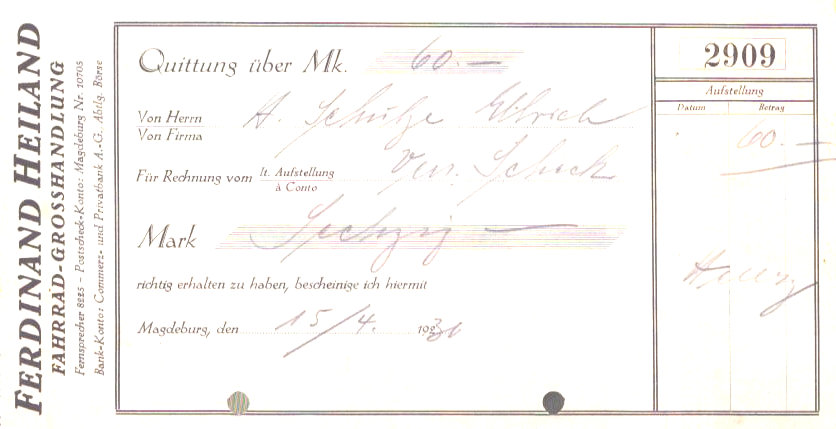 FERDINAND HEILAND
FAHRRAD-GROSSHANDLUNG
Fernsprecher 8225 – Postscheck-Konto: Magdeburg Nr. 10705
Bank-Konto: Commerz- und Privatbank A.-G. Abtlg. Börse
Quittung über Mk. 60.—
Von Herrn
Von Firma
A. Schulze
Für Rechnung vom lt. Aufstellung
à Conto
Mark Sechzig —
richtig erhalten zu haben, bescheinige ich hiermit
Magdeburg, den 15/4. 193
2909
Aufstellung
Datum Betrag
60.—